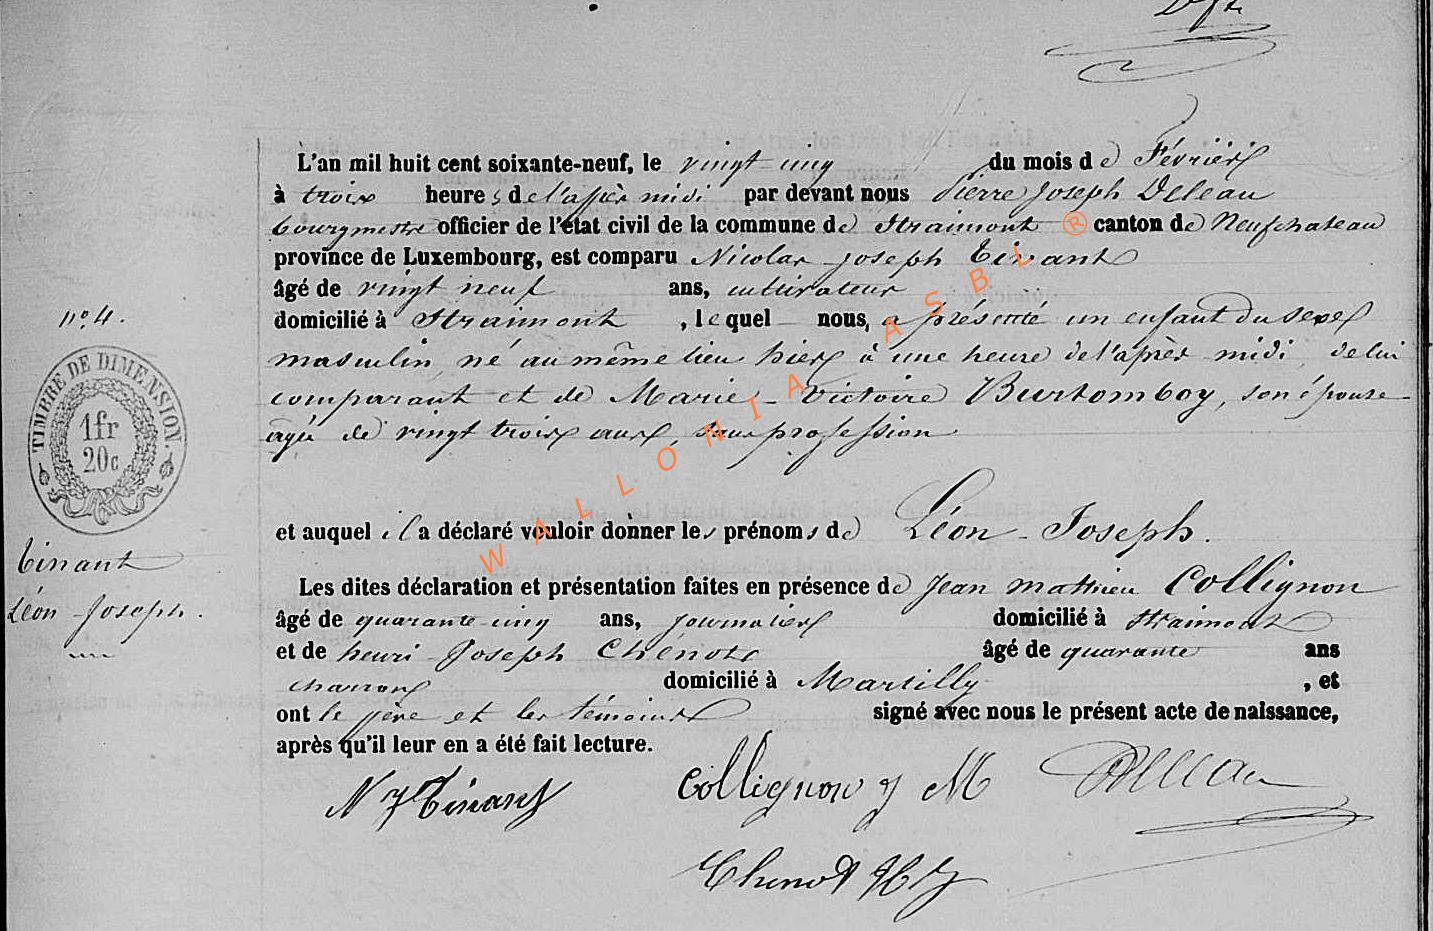 L'an mil huit cent soixante-neuf, le vingt-cinq du mois de Février
à trois heures de l'après midi par devant nous Pierre Joseph Deleau
bourgmestre officier de l'état civil de la commune de Straimont ® canton de Neufchateau
province de Luxembourg, est comparu Nicolas-Joseph Tinant
âgé de vingt neuf ans, cultivateur
n°. 4.
domicilié à Straimont, lequel nous, a présenté un enfant du sexe
masculin, né au même lieu hier à une heure de l'après midi, de lui
comparant et de Marie-Victoire Burtomboy, son épouse
agée de vingt trois ans, sans profession
TIMBRE DE DIMENSION
1fr
20c
WALLONIA ASBL
et auquel il a déclaré vouloir donner les prénoms de Léon-Joseph.
Tinant
Léon-Joseph.
Les dites déclaration et présentation faites en présence de Jean Mathieu Collignon
âgé de quarante-cinq ans, journalier domicilié à Straimont
et de henri-Joseph Chénot âgé de quarante ans
charron domicilié à Martilly, et
ont le père et les témoins signé avec nous le présent acte de naissance,
après qu'il leur en a été fait lecture.
N J Tinant
Collignon J M
Deleau
Chenot H J